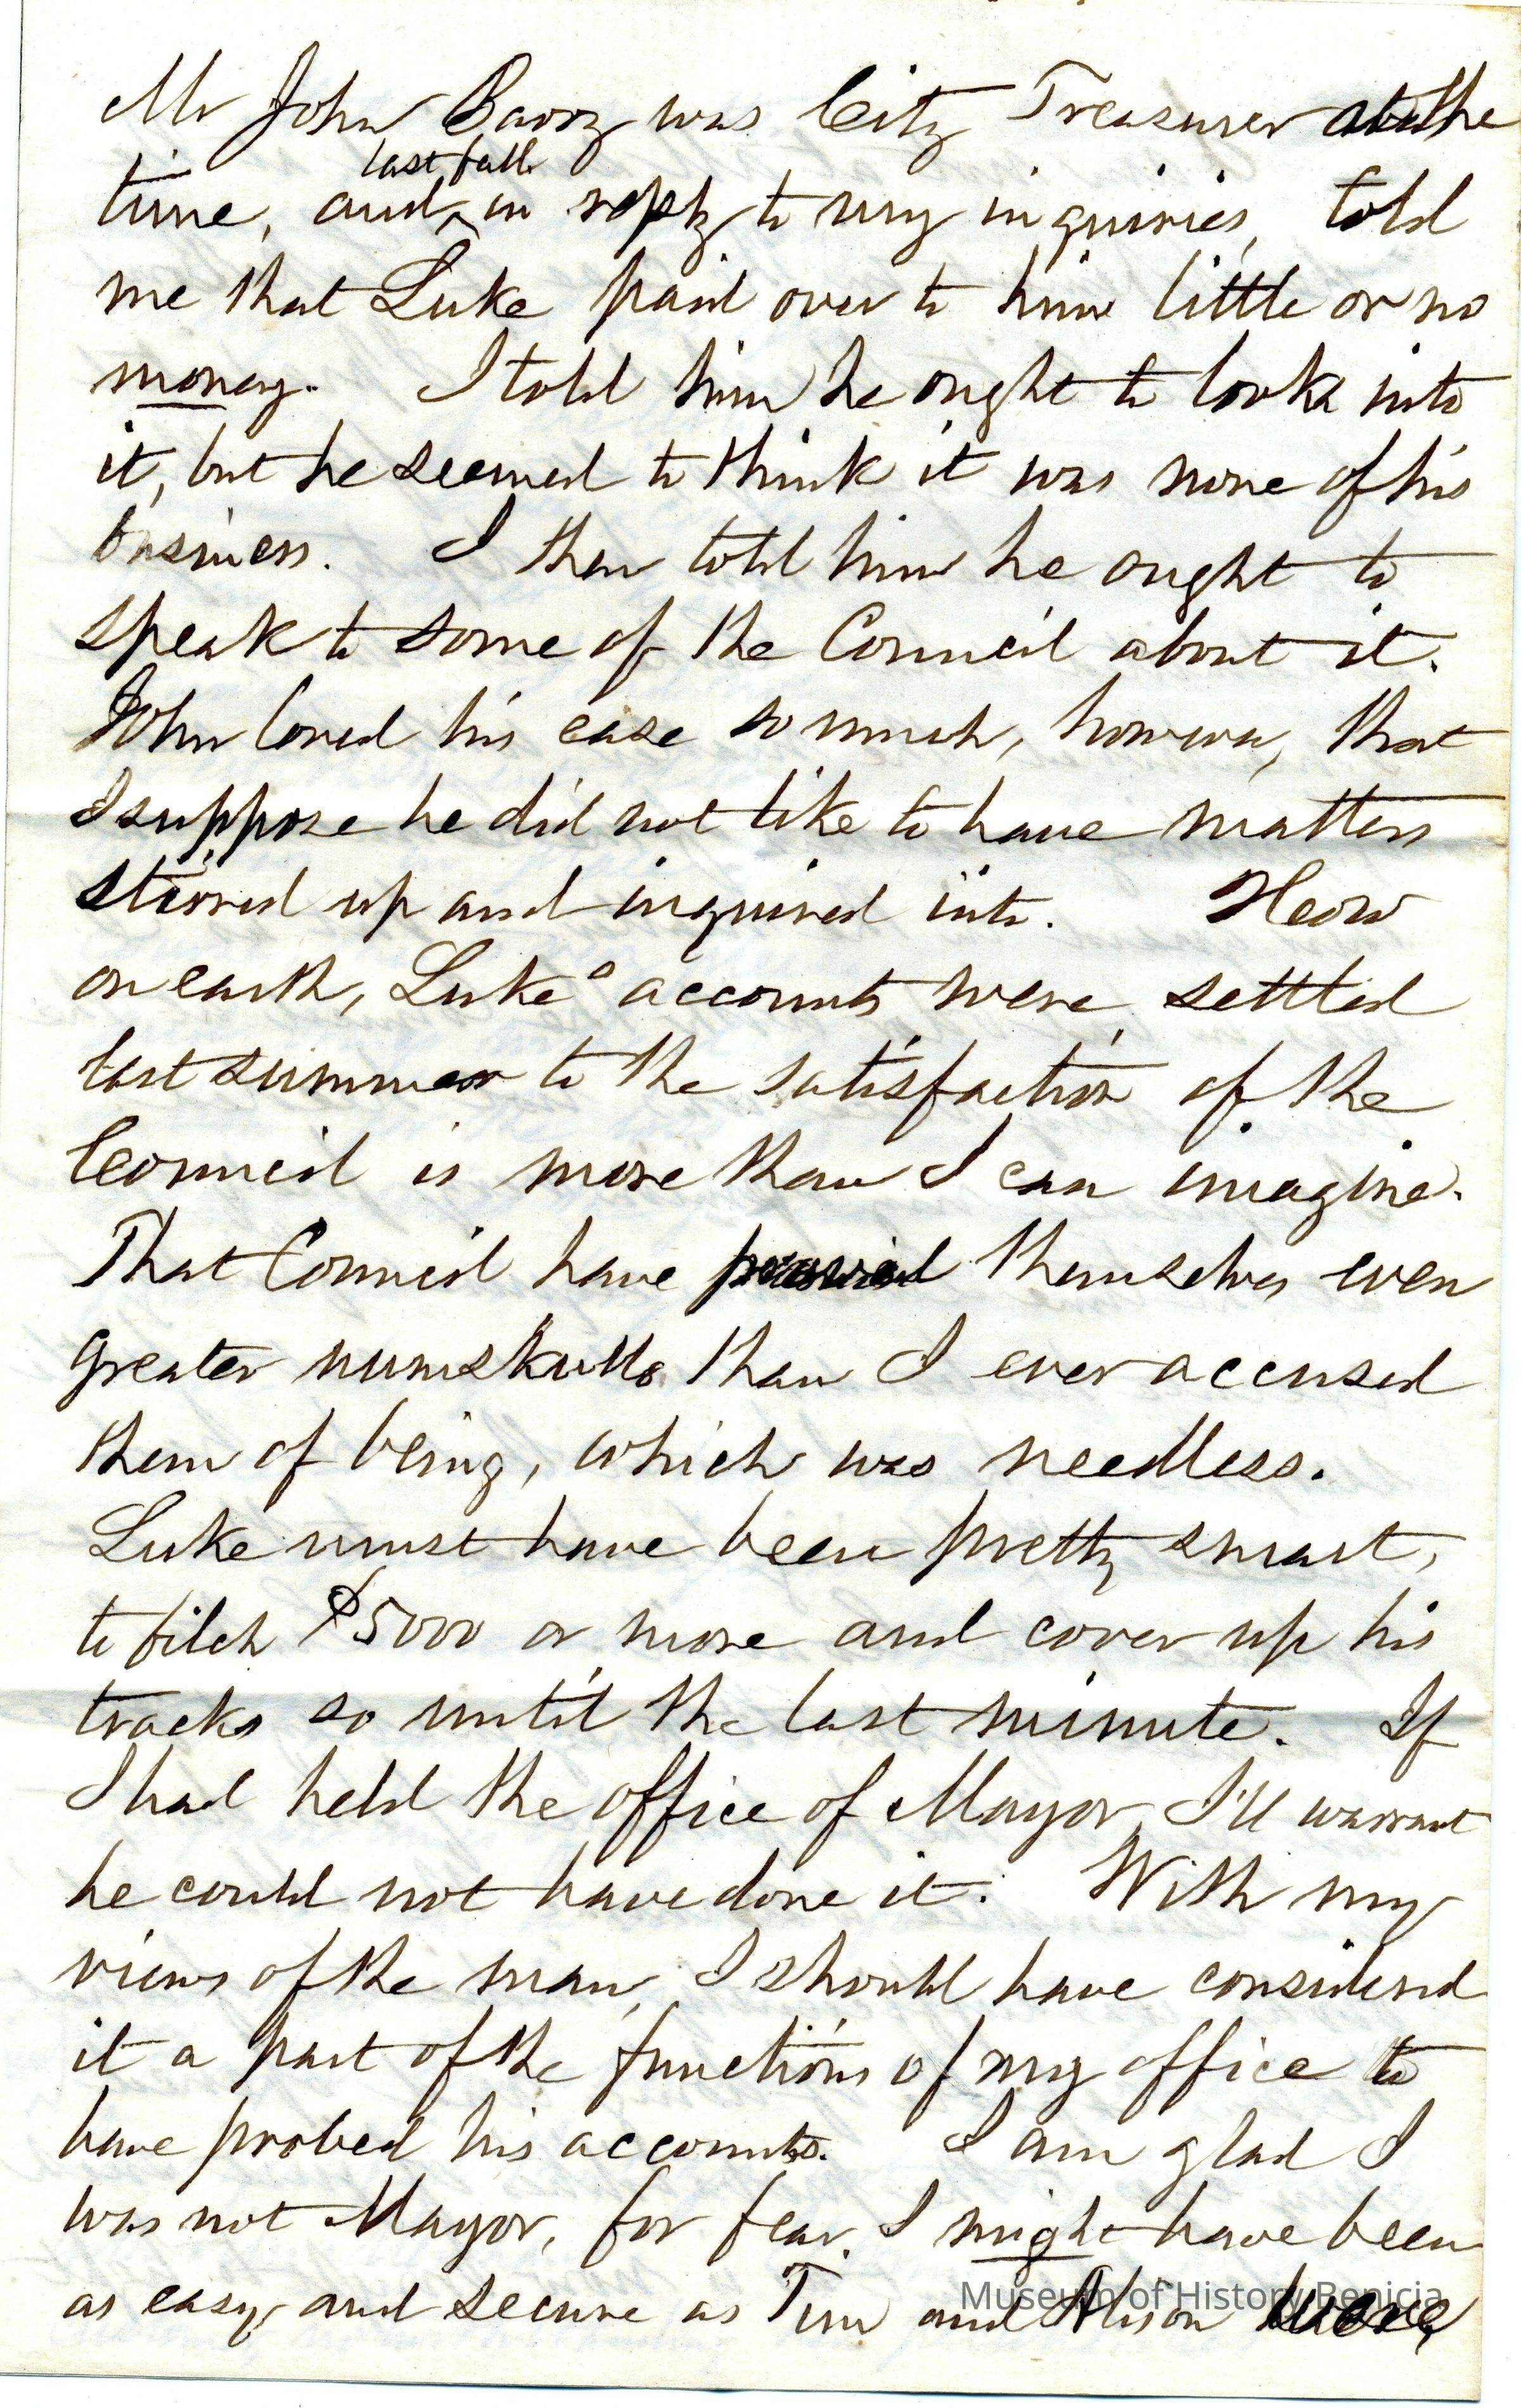 Mr John Barry was City Treasurer at the
last fall
time, and ^ in reply to my inquiries, told
me that Luke paid over to him little or no
money. I told him he ought to look into
it, but he seemed to think it was none of his
business. I then told him he ought to
speak to some of the Council about it.
John loved his ease so much, however, that
I suppose he did not like to have matters
stirred up and inquired into. How
on earth, Lukes accounts were settled
last summer to the satisfaction of the
Council is more than I can imagine.
That Council have themselves even
greater numskulls than I ever accused
them of being, which was needless.
Luke must have been pretty smart,
to filch $5000 or more and cover up his
tracks so until the last minute. If
I had held the office of Mayor, I'll warrant
he could not have done it. With my
views of the man, I should have considered
it a part of the functions of my office to
have probed his accounts. I am glad I
was not Mayor, for fear I might have been
as easy and secure as Tim and Alison were,
Museum of History Benicia